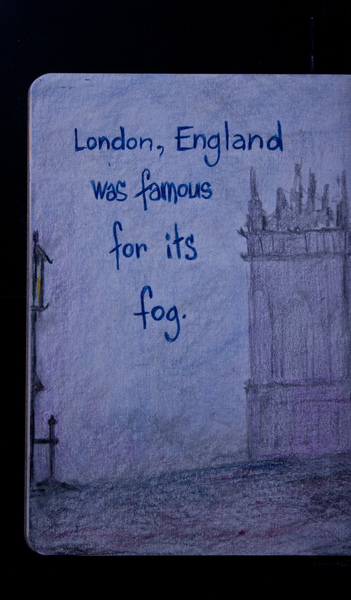 London, England
was famous
for its
fog.